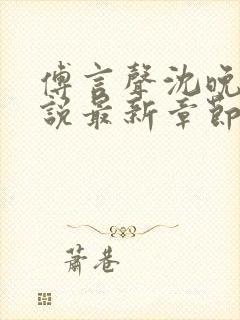 傅言聲沈晚
說最新章節
蕭巷